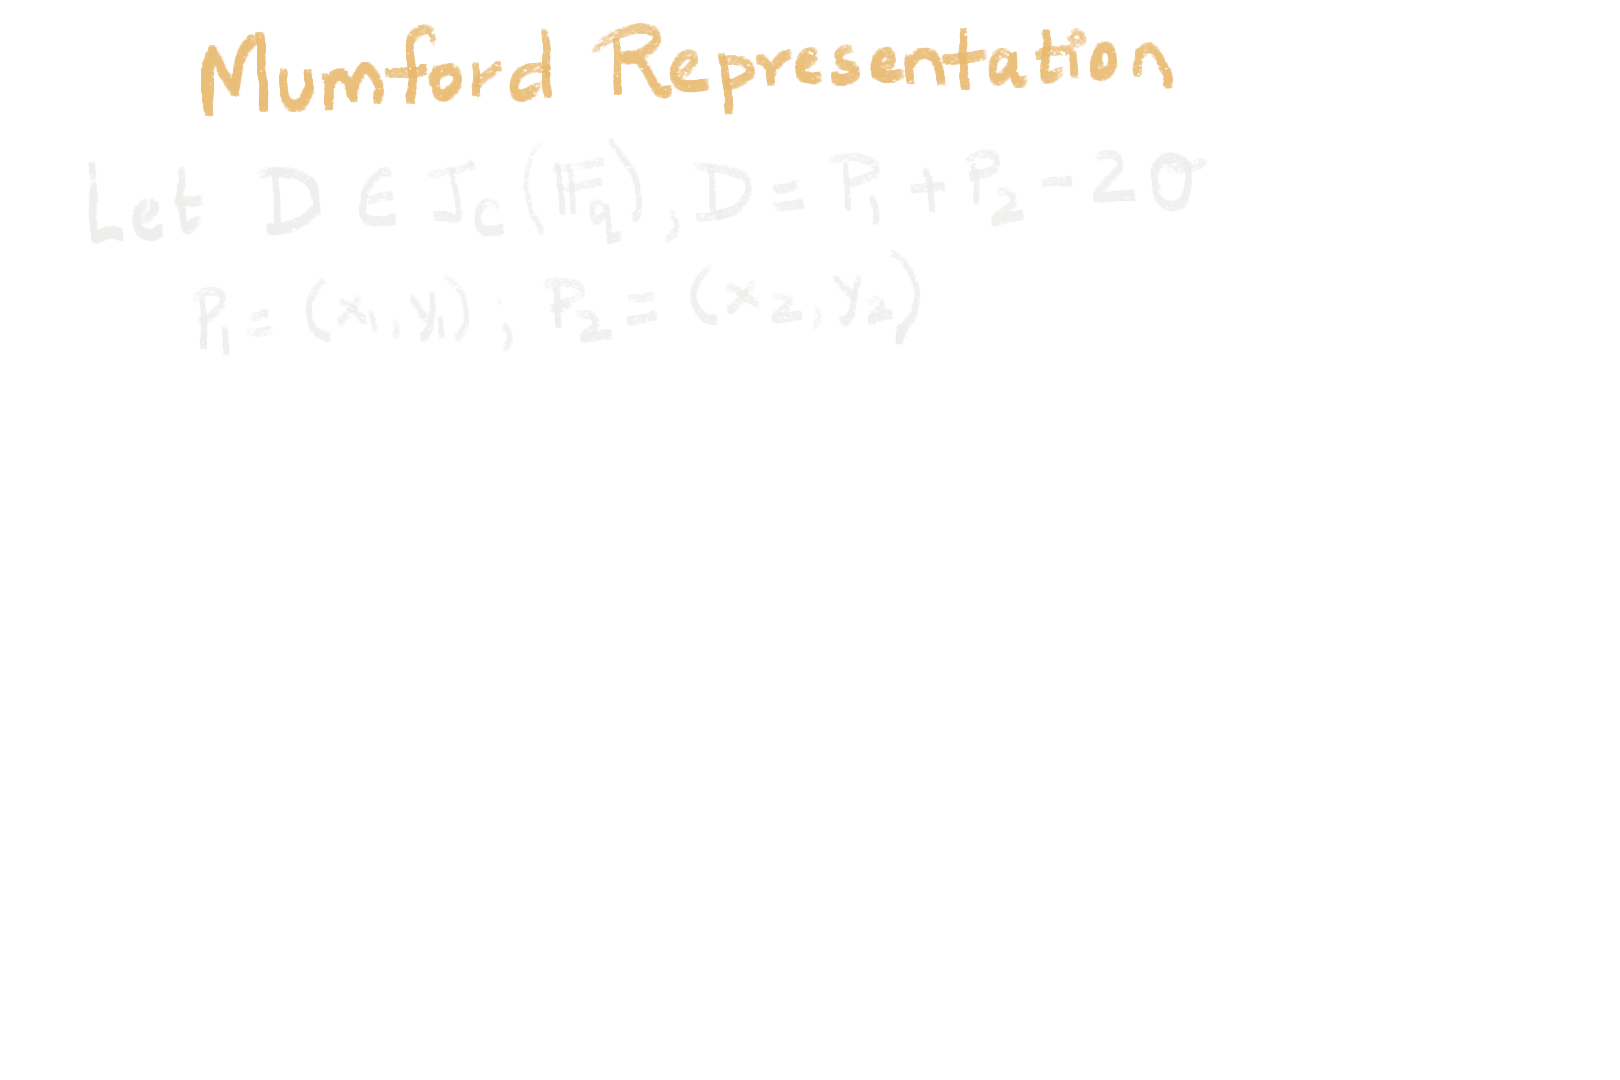 Mumford Representation
Let D ∈ J_C(𝔽_q), D = P₁ + P₂ - 2σ
P₁ = (x₁, y₁) ; P₂ = (x₂, y₂)